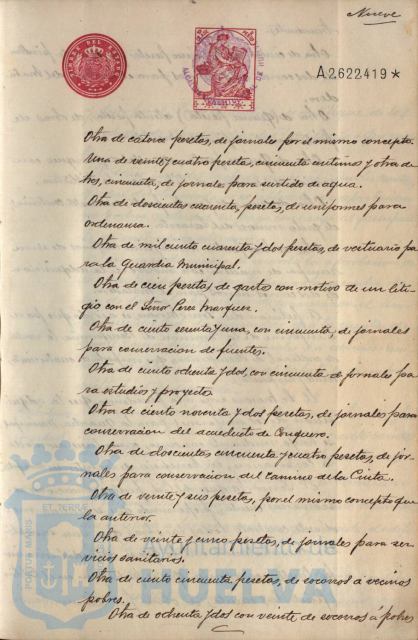 Nueve
A2622419*
Otra de catorce pesetas, de jornales por el mismo concepto.
Una de veinte y cuatro pesetas, cincuenta centimos y otra de
tres, cincuenta, de jornales para surtido de agua.
Otra de doscientas cuarenta, pesetas, de uniformes para
ordenanza.
Otra de mil ciento cuarenta y dos pesetas, de vestuario pa
ra la Guardia Municipal.
Otra de cien pesetas de gastos con motivo de un liti
gio con el Señor Perez Marquez.
Otra de ciento sesenta y una, con cincuenta, de jornales
para conservacion de fuentes.
Otra de ciento ochenta y dos, con cincuenta de jornales pa
ra estudios y proyecto.
Otra de ciento noventa y dos pesetas, de jornales para
conservacion del acueducto de Conquero.
Otra de doscientas cincuenta y cuatro pesetas, de jor-
nales para conservacion del Camino de la Cinta.
Otra de veinte y seis pesetas, por el mismo concepto que
la anterior.
Otra de veinte y cinco pesetas, de jornales para ser
vicios sanitarios.
Otra de ciento cincuenta pesetas, de socorros a vecinos
pobres.
Otra de ochenta y dos con veinte de socorros á pobres
PORTUS MARIS
ET TERRAE
Ayuntamiento de
HUELVA